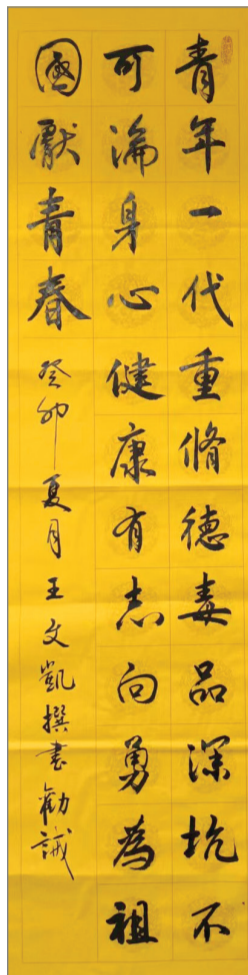 青年一代重脩德毒品深坑不
可淪身心健康有志向勇為祖
國獻青春
癸卯夏月王文凱撰書勸誡